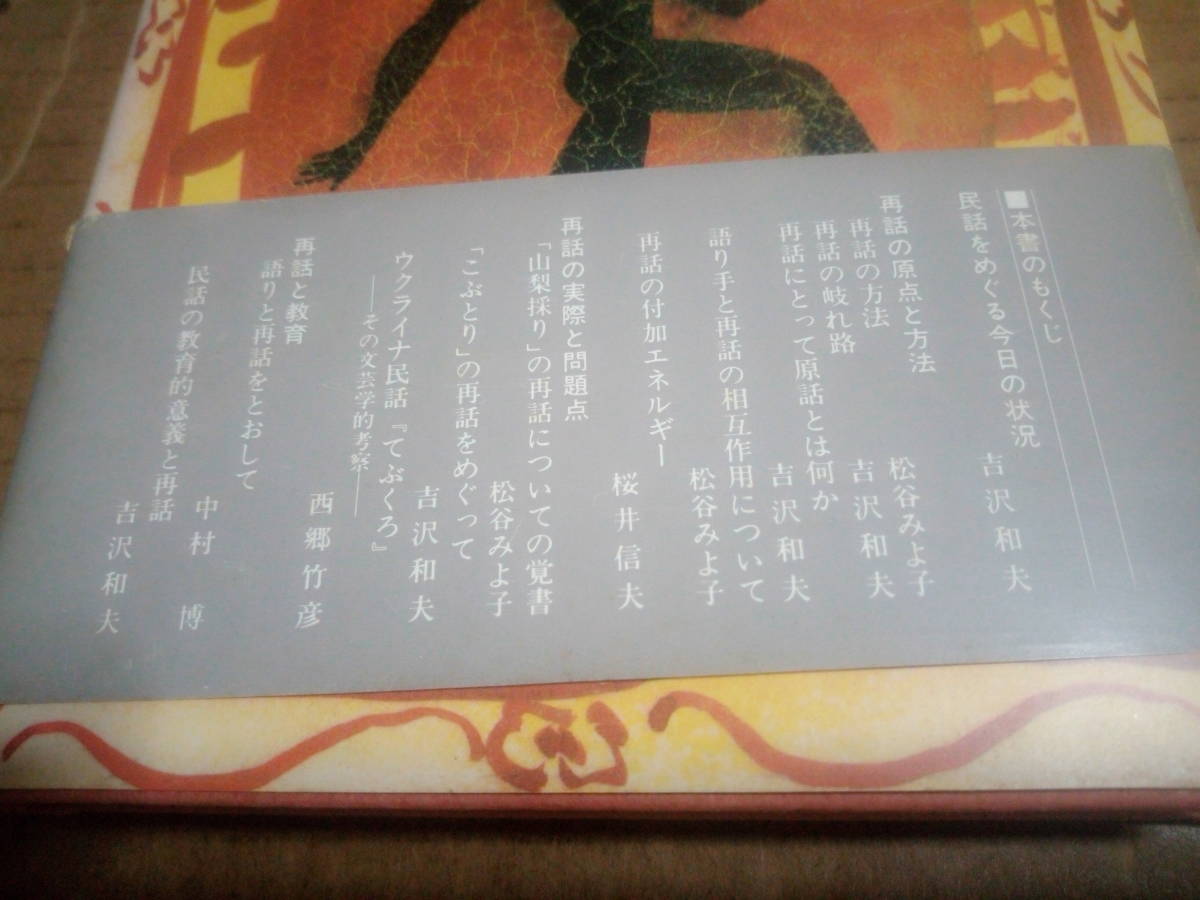 ■本書のもくじ
民話をめぐる今日の状況
吉沢和夫
再話の原点と方法
松谷みよ子
再話の方法
吉沢和夫
再話の岐れ路
吉沢和夫
再話にとって原話とは何か
語り手と再話の相互作用について
松谷みよ子
再話の付加エネルギー
桜井信夫
再話の実際と問題点
「山梨採り」の再話についての覚書
松谷みよ子
「こぶとり」の再話をめぐって
吉沢和夫
ウクライナ民話『てぶくろ』
――その文芸学的考察――
西郷竹彦
再話と教育
語りと再話をとおして
中村 博
民話の教育的意義と再話
吉沢和夫